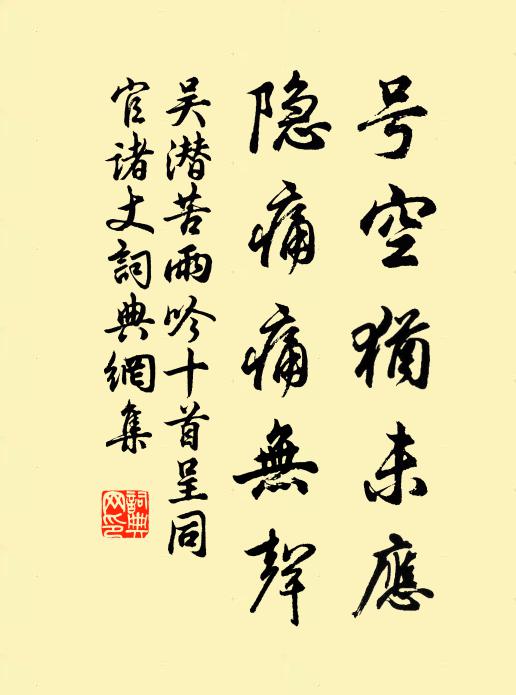 号空猶未應
隐痛痛無聲
吴潜苦雨吟十首呈同
官诸丈詞典網集
詞典
网印